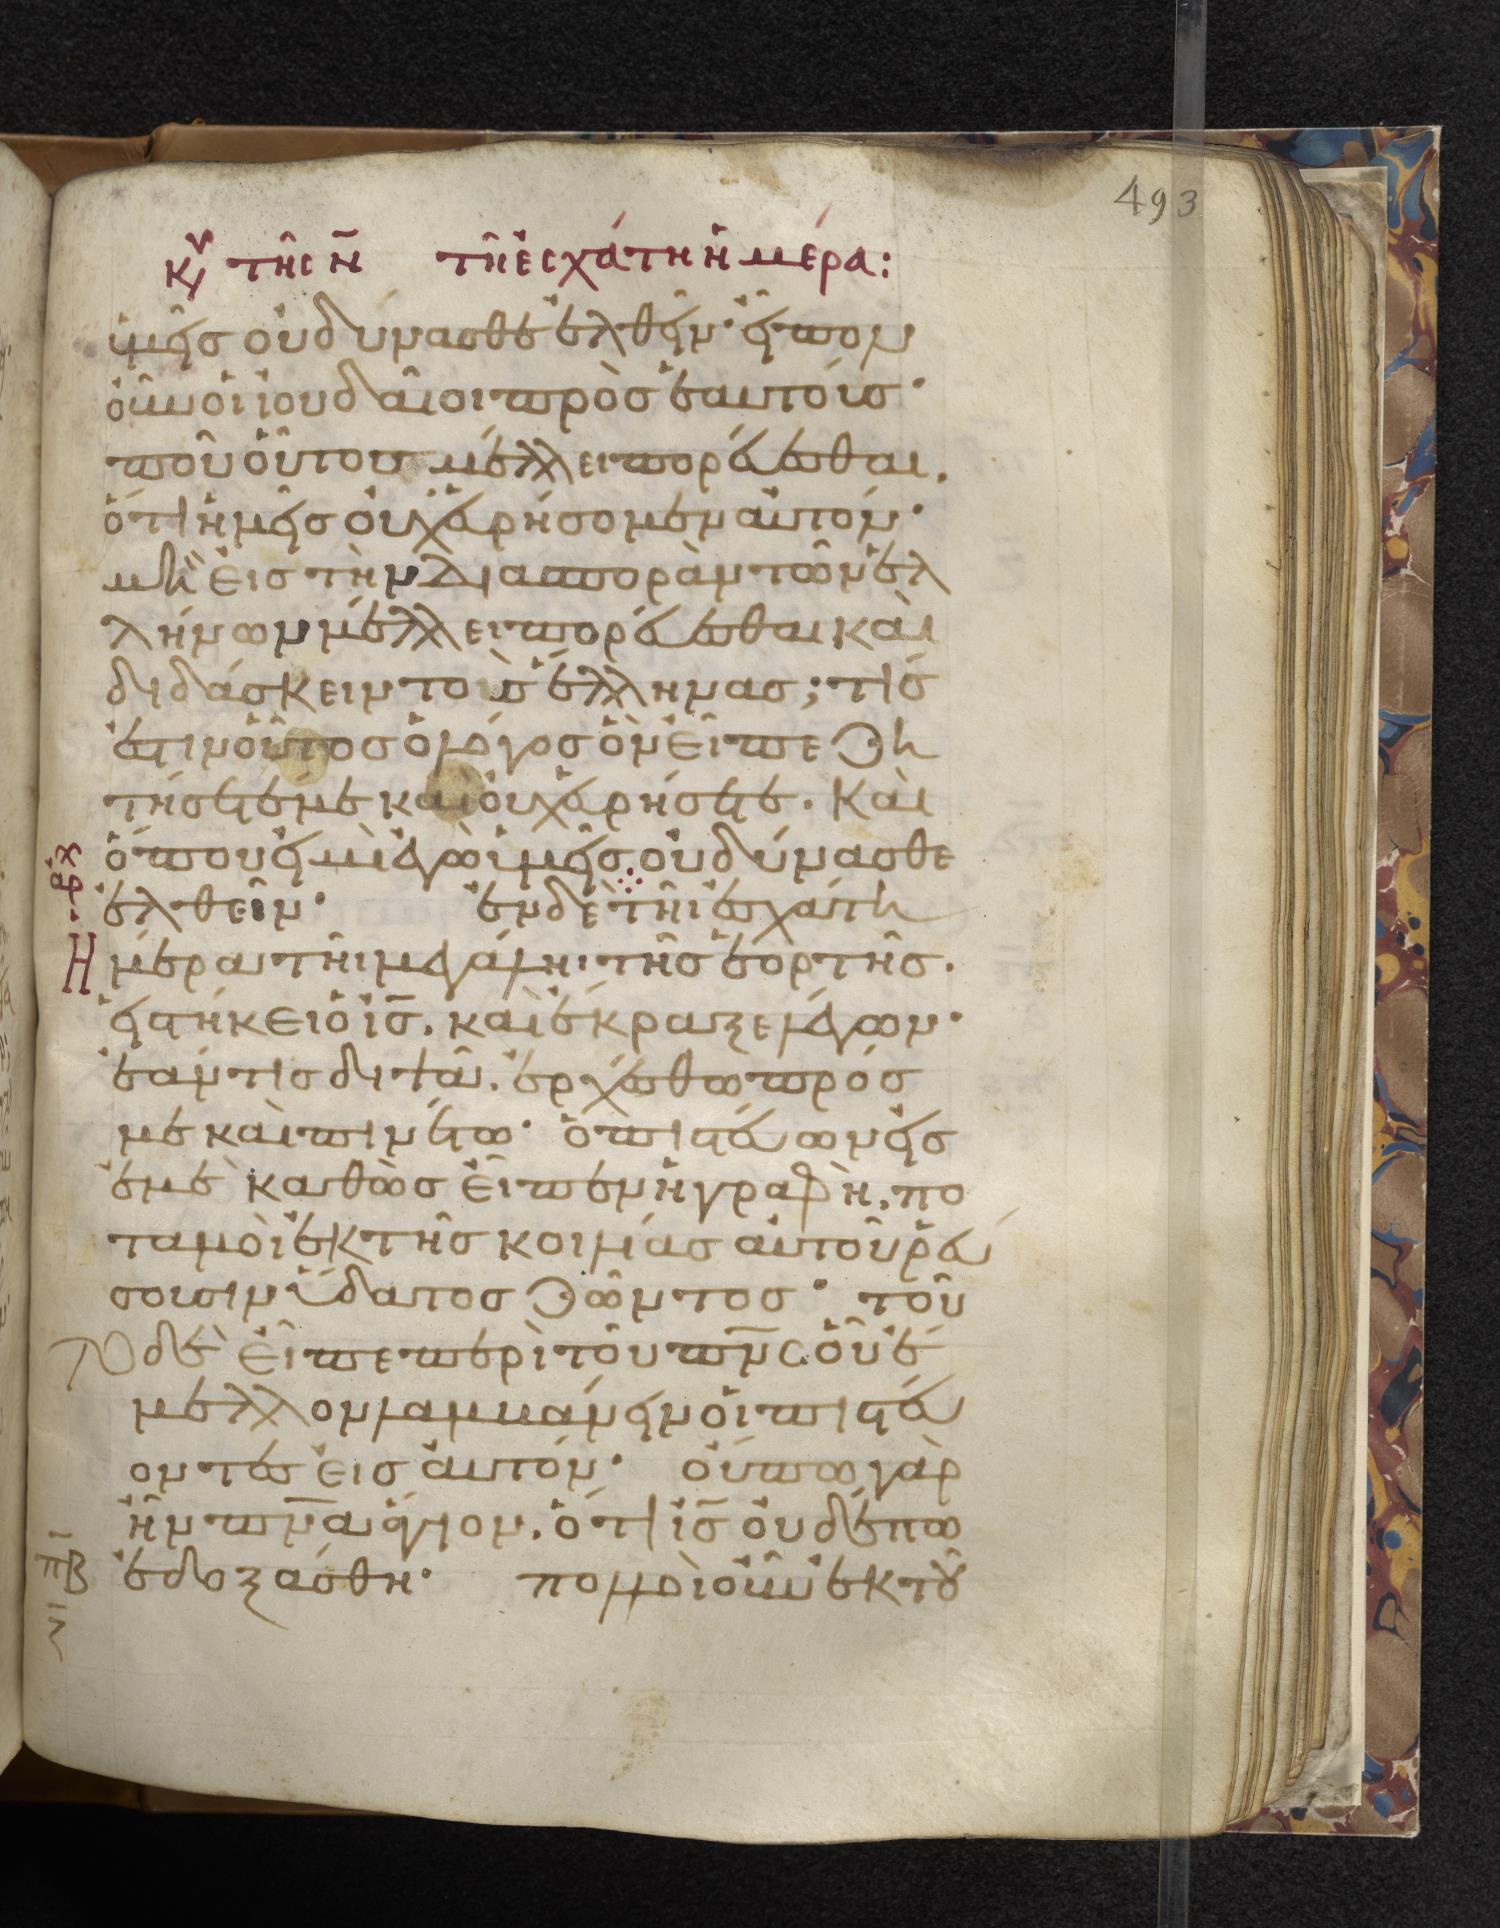 493
Κυ τῆς ν̄ τῆ ἐσχάτη ἡμέρα:
ὑμεῖς οὐ δύνασθε ἐλθεῖν· εἶπον
οὖν οἱ ἰουδαῖοι πρὸς ἑαυτούσ·
ποῦ οὗτος μέλλει πορεύεσθαι.
ὅτι ἡμεῖς οὐχ εὑρήσομεν αὐτόν·
μὴ εἰς τὴν διασπορὰν τῶν ἐλ
λήνων μέλλει πορεύεσθαι καὶ
διδάσκειν τοὺς ἕλληνας; τίς
ἐστιν οὗτος ὁ λόγος ὃν εἶπε ζη
τήσετέ με καὶ οὐχ εὑρήσετε. καὶ
ὅπου εἰμὶ ἐγὼ ὑμεῖς οὐ δύνασθε
αρχ
ἐλθεῖν· ἐν δὲ τῆι ἐσχάτη
Η μέρα τῆι μεγάληι τῆς ἑορτῆς.
εἱστήκει ὁ ἰς̄. καὶ ἔκραξε λέγων·
ἐάν τις διψᾶ. ἐρχέσθω πρός
με καὶ πινέτω· ὁ πιστεύων εἰς
ἐμὲ καθὼς εἶπεν ἡ γραφὴ. πο
ταμοὶ ἐκ τῆς κοιλίας αὐτοῦ ῥεύ
σουσιν ὕδατος ζῶντος· τοῦ
το δὲ εἶπε περὶ τοῦ πν̄ς οὗ ἔ
μελλον λαμβάνειν οἱ πιστεύ
οντες εἰς αὐτόν· οὔπω γὰρ
ἦν πν̄α ἅγιον. ὅτι ἰς̄ οὐδέπω
πβ ἐδοξάσθη· πολλοὶ οὖν ἐκ τοῦ
ζ